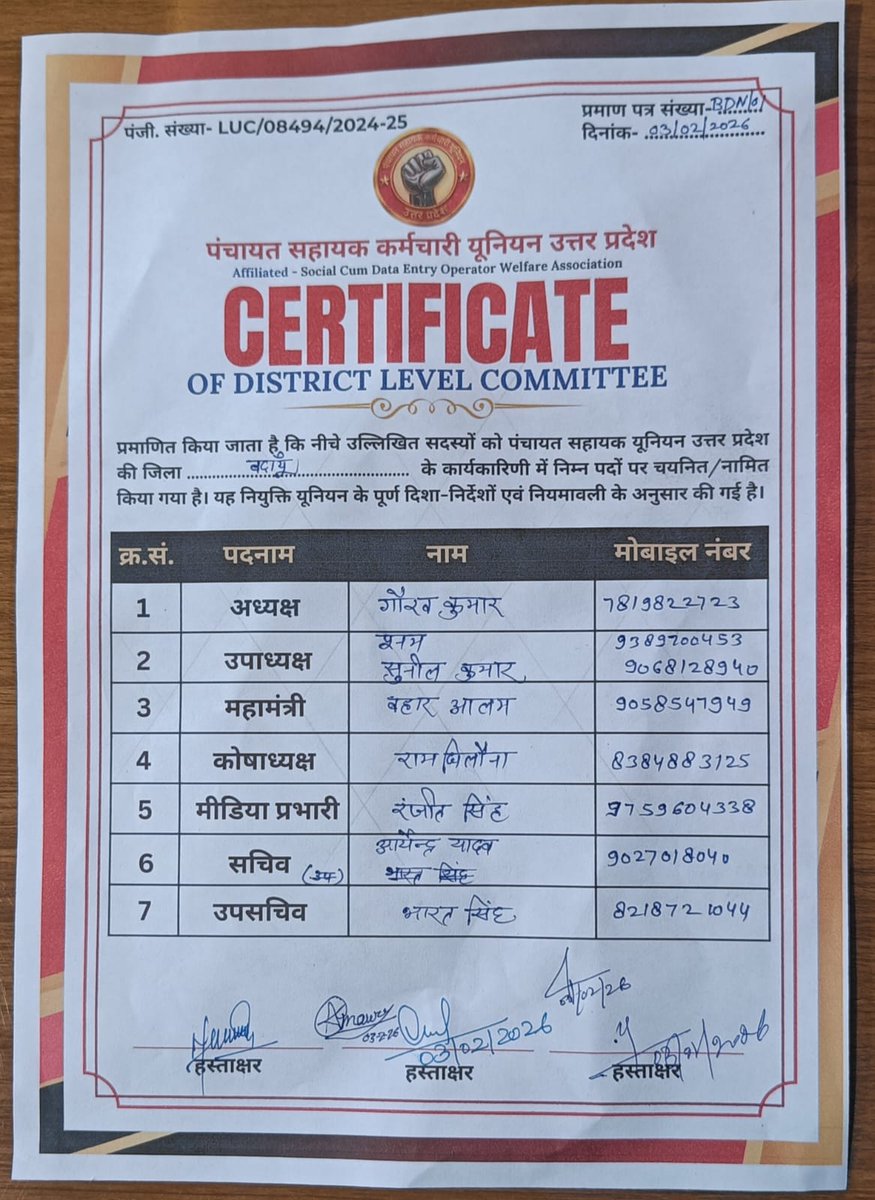 पंजी. संख्या- LUC/08494/2024-25
प्रमाण पत्र संख्या-BDN/01
दिनांक- 03/02/2026
पंचायत सहायक कर्मचारी यूनियन
उत्तर प्रदेश
पंचायत सहायक कर्मचारी यूनियन उत्तर प्रदेश
Affiliated - Social Cum Data Entry Operator Welfare Association
CERTIFICATE
OF DISTRICT LEVEL COMMITTEE
प्रमाणित किया जाता है कि नीचे उल्लिखित सदस्यों को पंचायत सहायक यूनियन उत्तर प्रदेश
की जिला बदायूं के कार्यकारिणी में निम्न पदों पर चयनित/नामित
किया गया है। यह नियुक्ति यूनियन के पूर्ण दिशा-निर्देशों एवं नियमावली के अनुसार की गई है।
क्र.सं. पदनाम नाम मोबाइल नंबर
1 अध्यक्ष गौरव कुमार 7819822723
2 उपाध्यक्ष
9389700453
सुनील कुमार 9068128940
3 महामंत्री बहार आलम 9058547949
4 कोषाध्यक्ष राम 8384883125
5 मीडिया प्रभारी रंजीत सिंह 9759604338
6 सचिव आर्येन्द्र यादव 9027018040
भारत सिंह
7 उपसचिव भारत सिंह 8218721044
03/02/2026
हस्ताक्षर हस्ताक्षर हस्ताक्षर